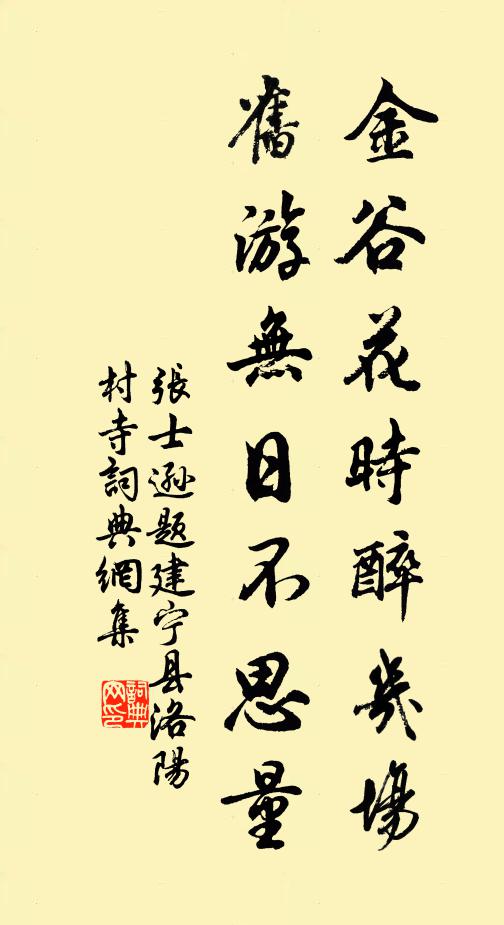 金谷花時醉幾場
舊游無日不思量
張士遜題建宁县洛陽
村寺詞典網集
詞典網印